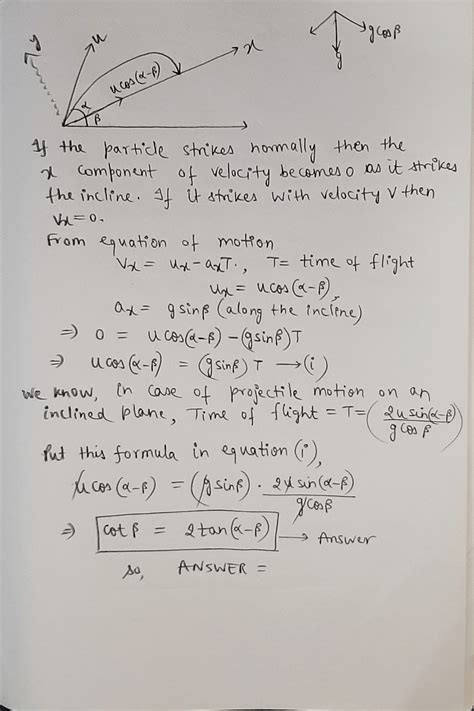 y
u
x
u cos(α-β)
α
β
g cos β
g
If the particle strikes normally then the
x component of velocity becomes 0 as it strikes
the incline. If it strikes with velocity V then
Vx = 0.
From equation of motion
Vx = ux - axT., T = time of flight
ux = u cos(α-β),
ax = g sinβ (along the incline)
⇒ 0 = u cos(α-β) - (g sinβ)T
⇒ u cos(α-β) = (g sinβ) T → (i)
we know, In case of projectile motion on an
inclined plane, Time of flight = T = (2u sin(α-β) / g cos β)
Put this formula in equation (i),
u cos(α-β) = (g sinβ) · 2u sin(α-β) / g cosβ
⇒ cot β = 2 tan(α-β) → Answer
so, ANSWER =